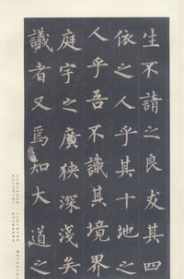 生不請之良友其四
依之人乎其十地之
人乎吾不識其境界
庭宇之廣狹深淺矣
議者又焉知大道之